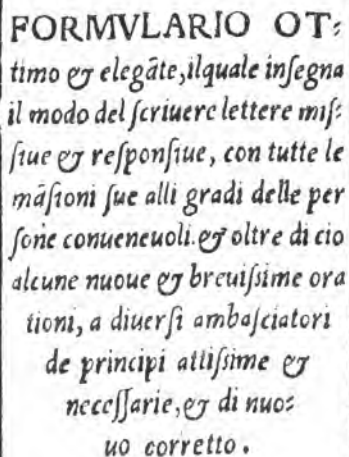 FORMVLARIO OT⸗
timo & elegāte, ilquale inſegna
il modo del ſcriuere lettere miſ⸗
ſiue & reſponſiue, con tutte le
māſioni ſue alli gradi delle per
ſone conueneuoli. & oltre di cio
alcune nuoue & breuiſsime ora
tioni, a diuerſi ambaſciatori
de principi attiſsime &
neceſſarie, & di nuo⸗
uo corretto.